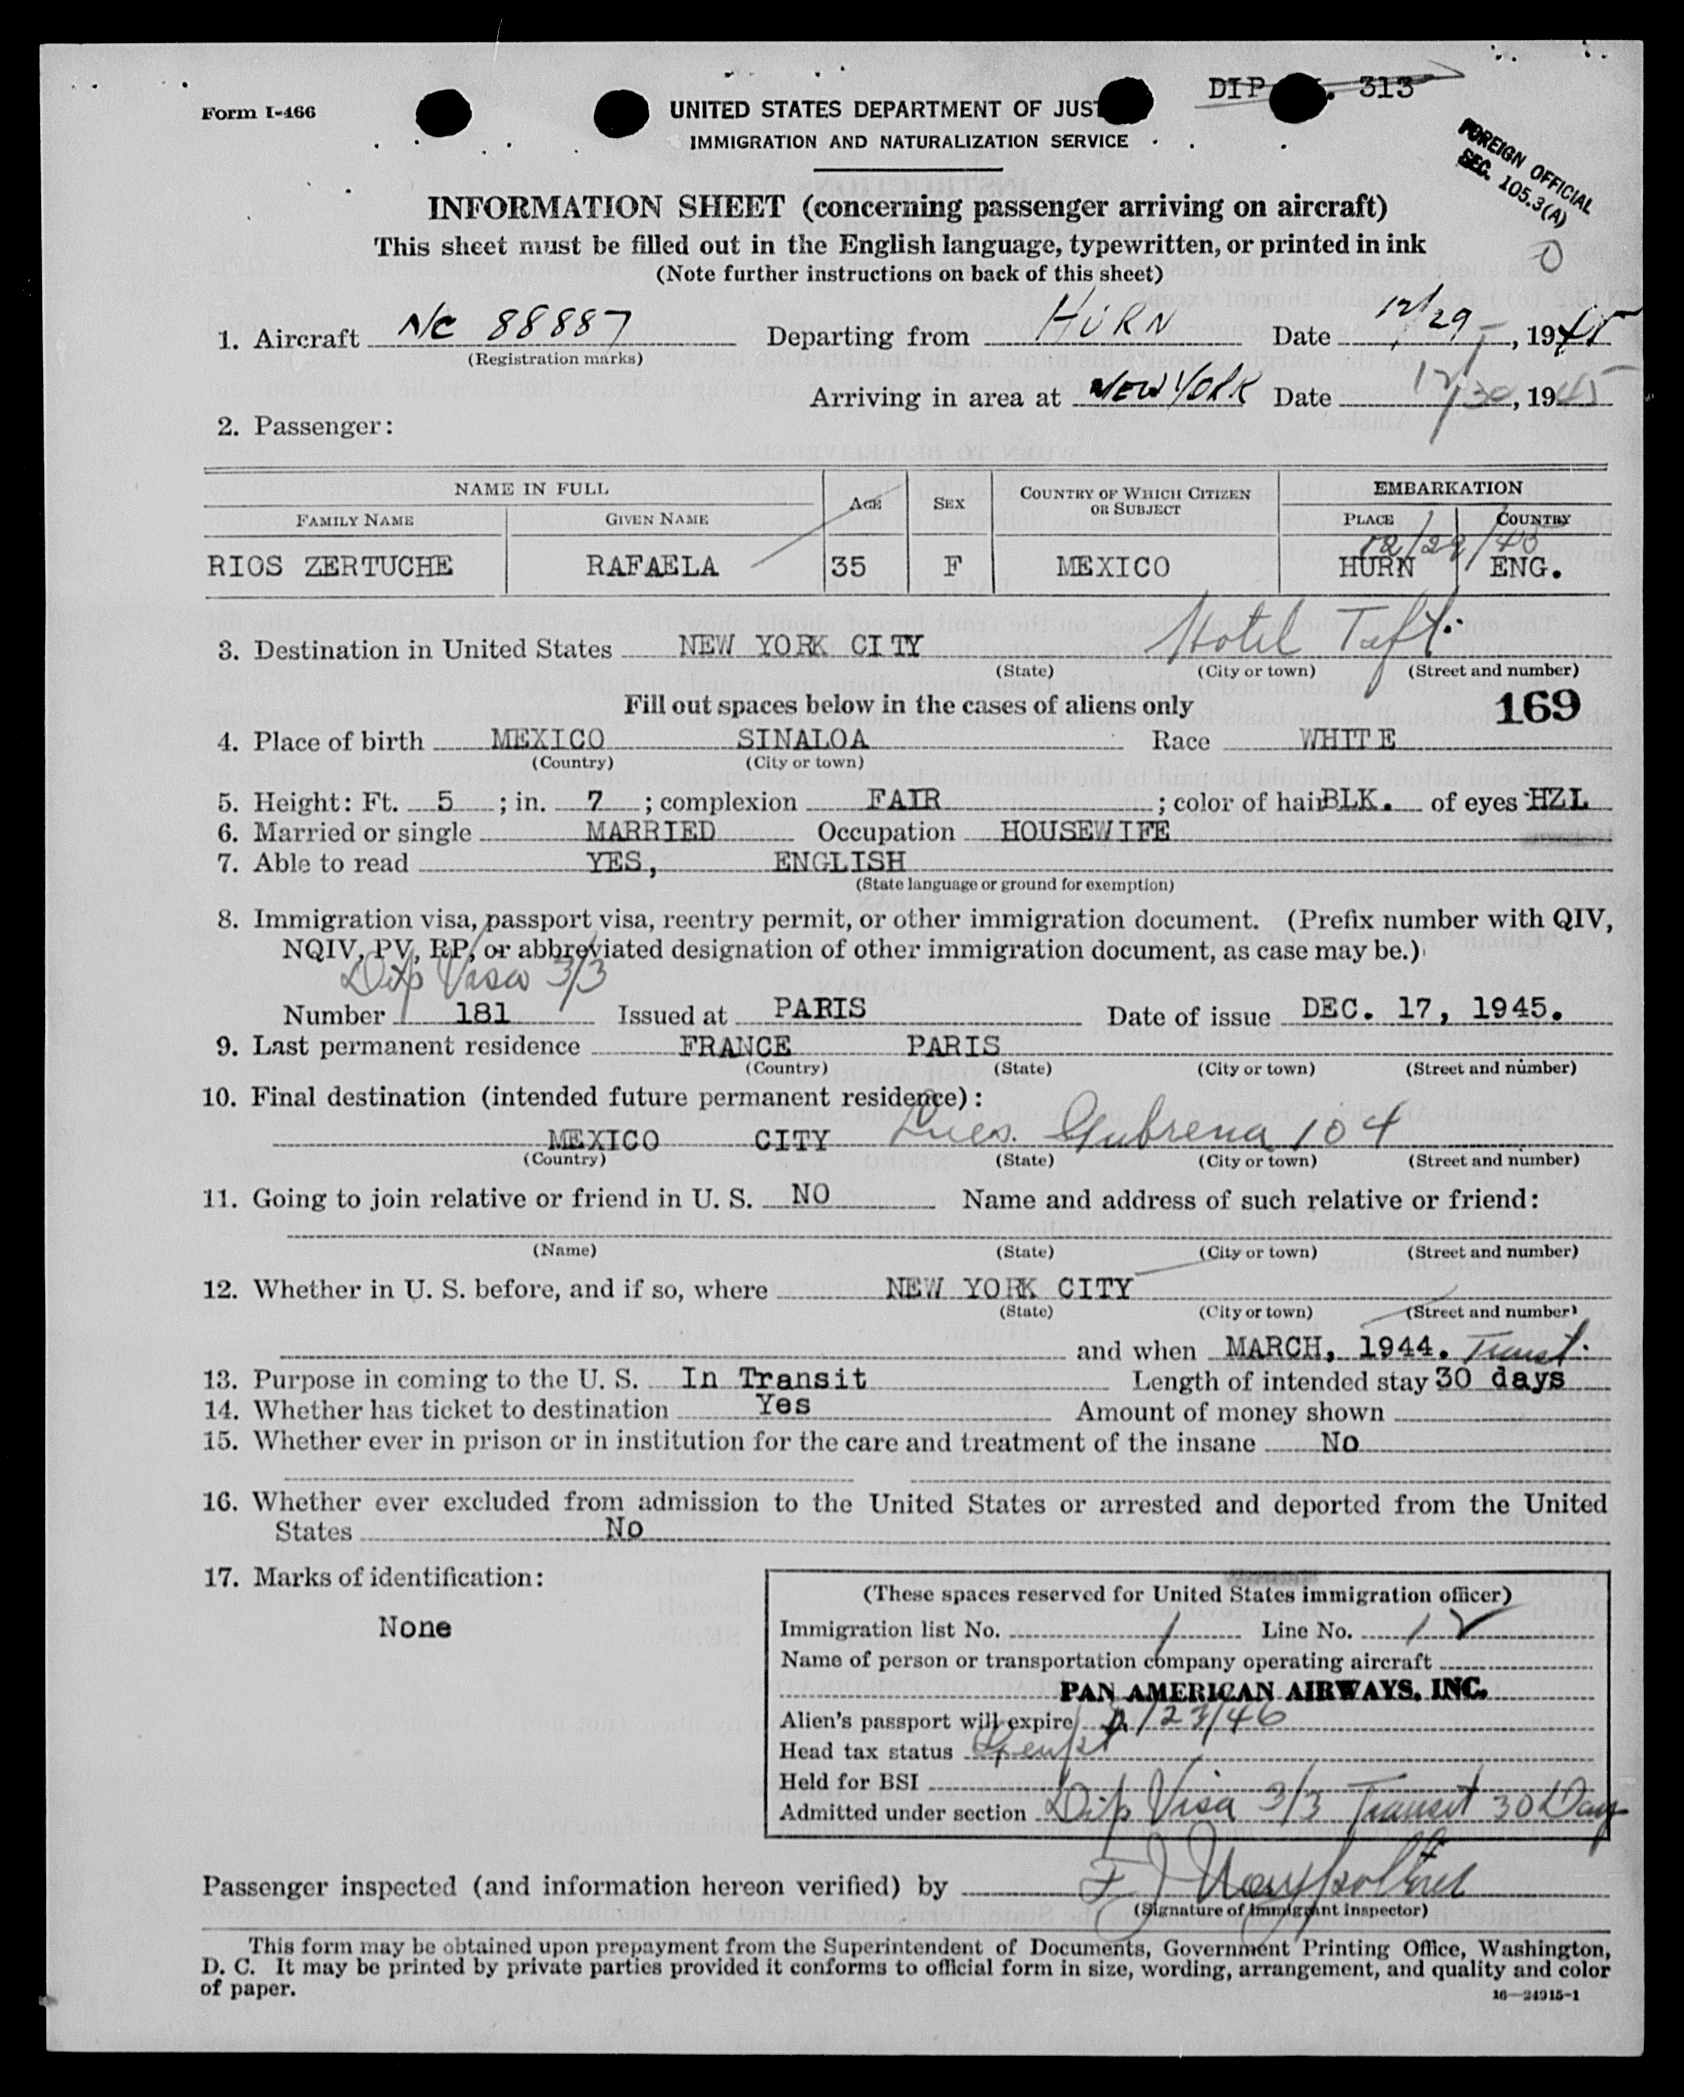 DIP . 313
Form I-466
UNITED STATES DEPARTMENT OF JUST
IMMIGRATION AND NATURALIZATION SERVICE
FOREIGN OFFICIAL
SEC. 105.3(A)
INFORMATION SHEET (concerning passenger arriving on aircraft)
This sheet must be filled out in the English language, typewritten, or printed in ink
(Note further instructions on back of this sheet)
1. Aircraft NC 88887 Departing from HURN Date 12/29, 1945
(Registration marks)
Arriving in area at NEW YORK Date 12/30, 1945
2. Passenger:
NAME IN FULL AGE SEX COUNTRY OF WHICH CITIZEN OR SUBJECT EMBARKATION
FAMILY NAME GIVEN NAME PLACE COUNTRY
12/29/45
RIOS ZERTUCHE RAFAELA 35 F MEXICO HURN ENG.
3. Destination in United States NEW YORK CITY Hotel Taft.
(State) (City or town) (Street and number)
Fill out spaces below in the cases of aliens only 169
4. Place of birth MEXICO SINALOA Race WHITE
(Country) (City or town)
5. Height: Ft. 5 ; in. 7 ; complexion FAIR ; color of hair BLK. of eyes HZL
6. Married or single MARRIED Occupation HOUSEWIFE
7. Able to read YES, ENGLISH
(State language or ground for exemption)
8. Immigration visa, passport visa, reentry permit, or other immigration document. (Prefix number with QIV,
NQIV, PV, RP, or abbreviated designation of other immigration document, as case may be.)
Dip Visa 3/3
Number 181 Issued at PARIS Date of issue DEC. 17, 1945.
9. Last permanent residence FRANCE PARIS
(Country) (State) (City or town) (Street and number)
10. Final destination (intended future permanent residence):
MEXICO CITY 104
(Country) (State) (City or town) (Street and number)
11. Going to join relative or friend in U. S. NO Name and address of such relative or friend:
(Name) (State) (City or town) (Street and number)
12. Whether in U. S. before, and if so, where NEW YORK CITY
(State) (City or town) (Street and number)
and when MARCH, 1944. Transit.
13. Purpose in coming to the U. S. In Transit Length of intended stay 30 days
14. Whether has ticket to destination Yes Amount of money shown
15. Whether ever in prison or in institution for the care and treatment of the insane No
16. Whether ever excluded from admission to the United States or arrested and deported from the United
States No
17. Marks of identification:
None
(These spaces reserved for United States immigration officer)
Immigration list No. 1 Line No. 1
Name of person or transportation company operating aircraft
PAN AMERICAN AIRWAYS, INC.
Alien's passport will expire /23/46
Head tax status Exempt
Held for BSI
Admitted under section Dip Visa 3/3 Transit 30 Day
Passenger inspected (and information hereon verified) by
(Signature of Immigrant Inspector)
This form may be obtained upon prepayment from the Superintendent of Documents, Government Printing Office, Washington,
D. C. It may be printed by private parties provided it conforms to official form in size, wording, arrangement, and quality and color
of paper.
16—24915-1